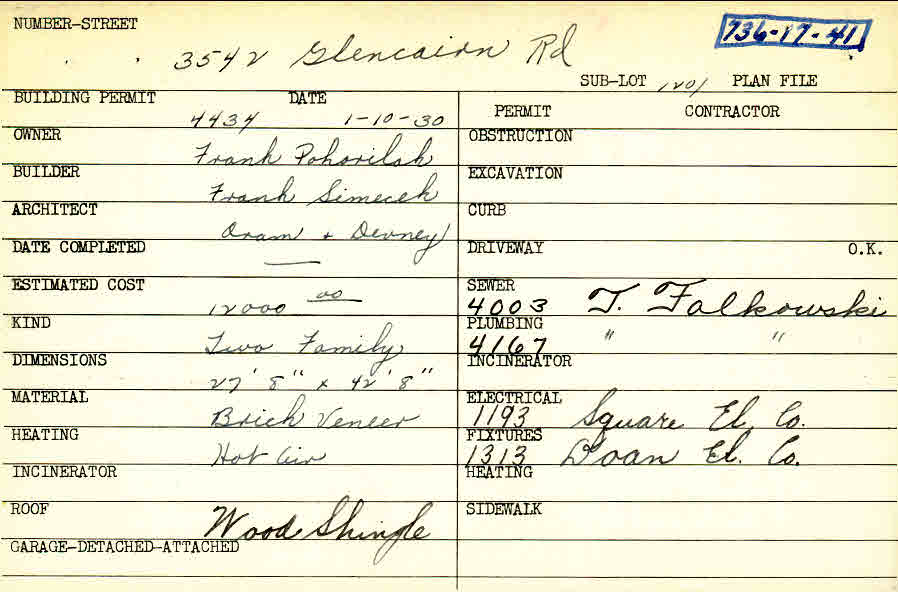 NUMBER-STREET 736-17-41
3542 Glencairn Rd
SUB-LOT 1201 PLAN FILE
BUILDING PERMIT DATE
4434 1-10-30
PERMIT CONTRACTOR
OWNER Frank Pohorilak
OBSTRUCTION
BUILDER Frank Simecek
EXCAVATION
ARCHITECT Oram + Devney
CURB
DATE COMPLETED —
DRIVEWAY O.K.
ESTIMATED COST 12000 00
SEWER
4003 T. Falkowski
KIND Two Family
PLUMBING
4167 " "
DIMENSIONS 27'8" x 42'8"
INCINERATOR
MATERIAL Brick Veneer
ELECTRICAL
1193 Square El. Co.
HEATING Hot Air
FIXTURES
1313 Doan El. Co.
INCINERATOR
HEATING
ROOF Wood Shingle
SIDEWALK
GARAGE-DETACHED-ATTACHED